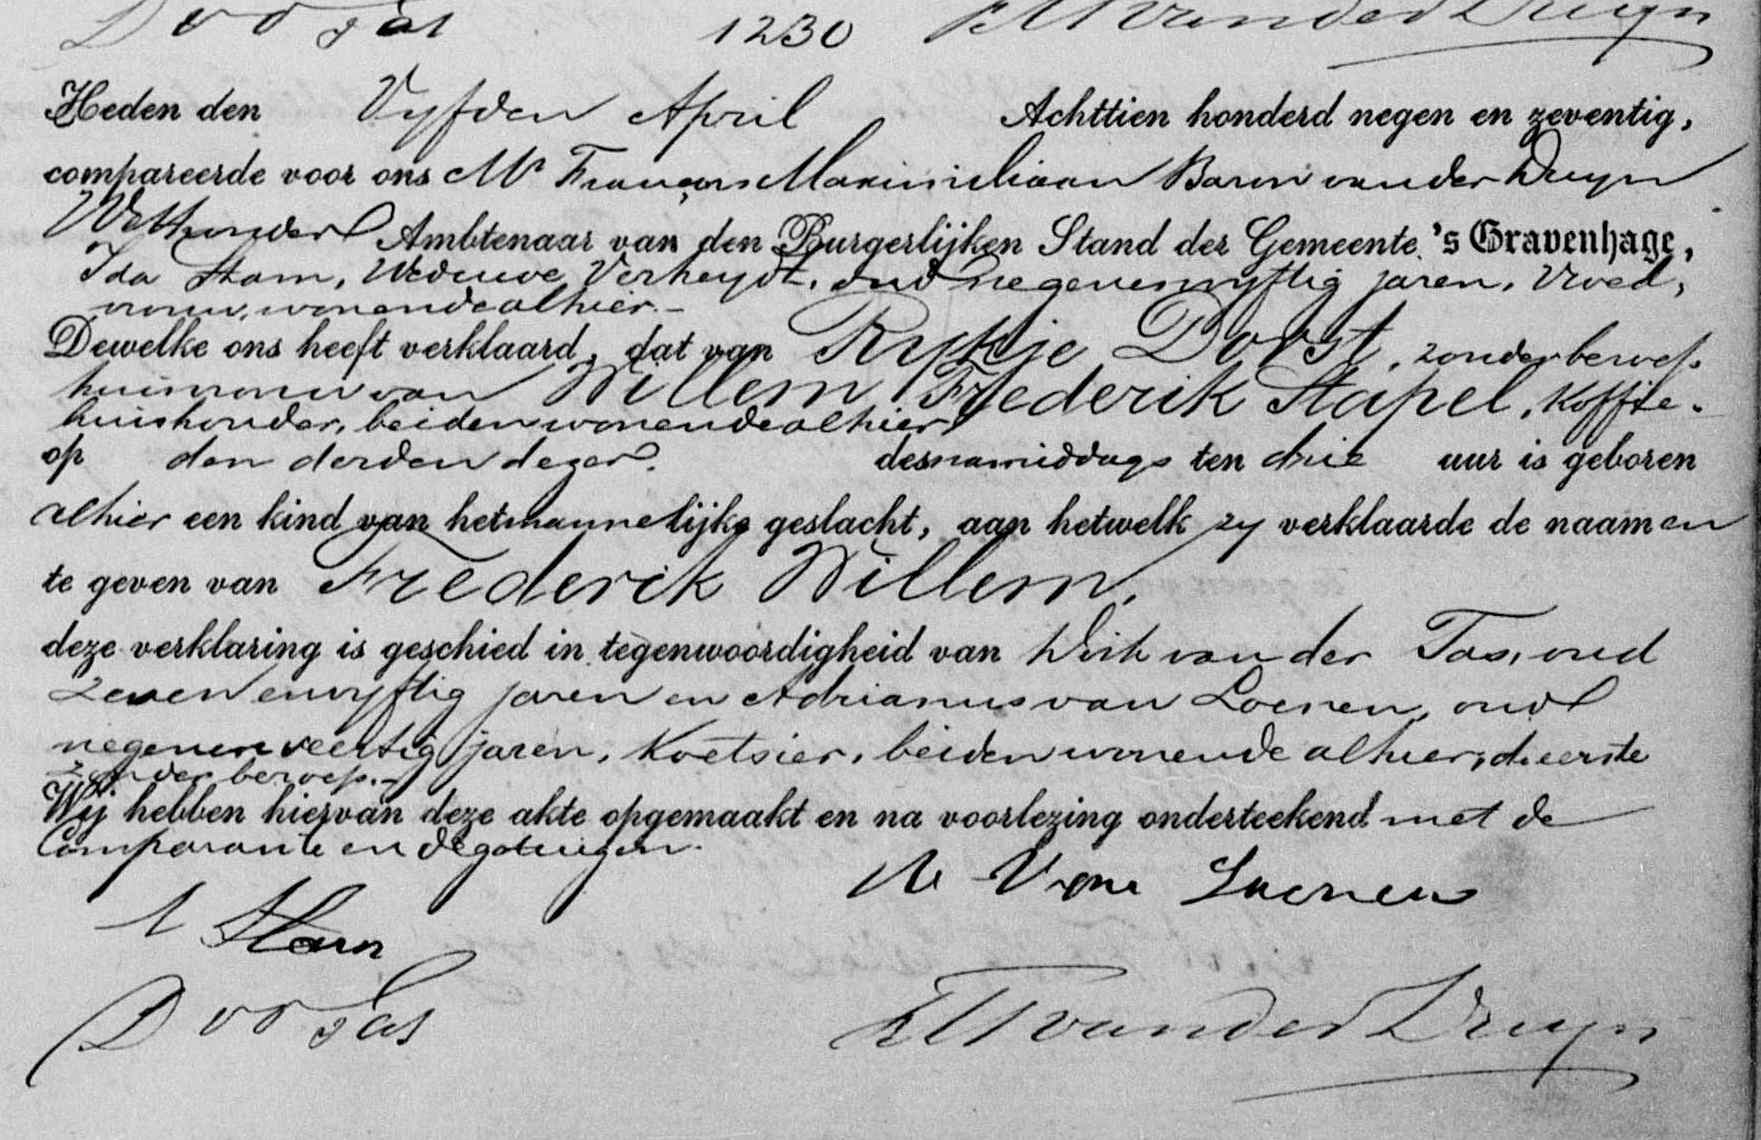 D v d Tas 1230 F M van der Duyn
Heden den Vyfden April Achttien honderd negen en zeventig,
compareerde voor ons Mr François Maximiliaan Baron van der Duyn
Wethouder Ambtenaar van den Burgerlijken Stand der Gemeente 's Gravenhage,
Ida Stam, Weduwe Verheydt, oud negenenvyftig jaren, Vroed,
vrouw, wonende alhier.-
Dewelke ons heeft verklaard, dat van Rykje Dorst, zonder beroep.
huisvrouw van Willem Frederik Stapel, Koffie-
huishouder, beiden wonende alhier,
op den derden dezer. desnamiddags ten drie uur is geboren
alhier een kind van hetmannelijke geslacht, aan hetwelk zy verklaarde de naamen
te geven van Frederik Willem.
deze verklaring is geschied in tegenwoordigheid van Dirk van der Tas, oud
zeven envyftig jaren en Adrianus van Loenen, oud
negenenveertig jaren, Koetsier, beiden wonende alhier, de eerste
zonder beroep.-
Wij hebben hiervan deze akte opgemaakt en na voorlezing onderteekend met de
Comparante en de getuigen.
A Van Loenen
I Stam
D v d Tas F M van der Duyn